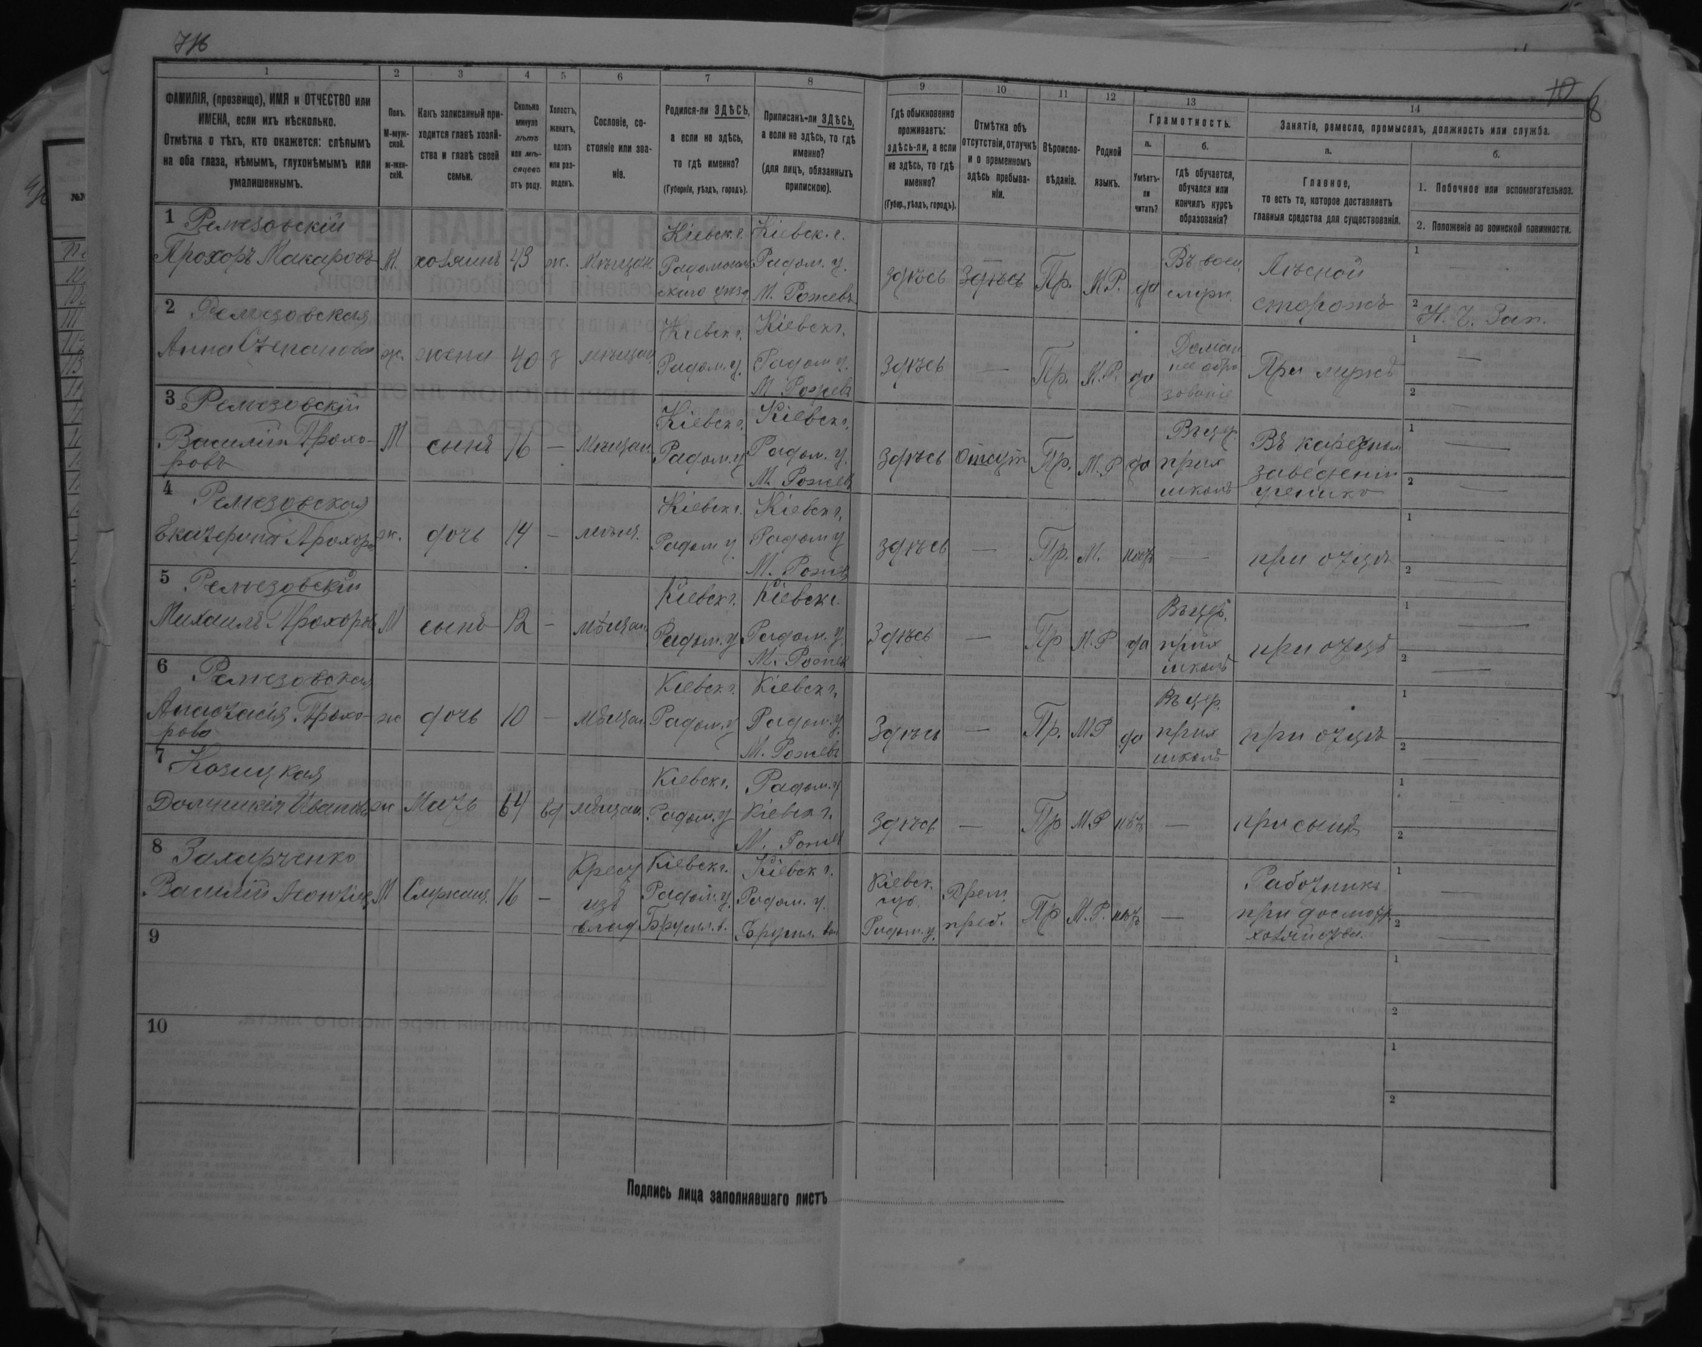 1 2 3 4 5 6 7 8 9 10 11 12 13 14
ФАМИЛІЯ, (прозвище), ИМЯ и ОТЧЕСТВО или
ИМЕНА, если ихъ нѣсколько.
Отмѣтка о тѣхъ, кто окажется: слѣпымъ
на оба глаза, нѣмымъ, глухонѣмымъ или
умалишеннымъ.
Полъ.
М-муж-
ской.
ж-жен-
скій.
Какъ записанный при-
ходится главѣ хозяй-
ства и главѣ своей
семьи.
Сколько
минуло
лѣтъ
или мѣ-
сяцевъ
отъ роду.
Холостъ,
женатъ,
вдовъ
или раз-
веденъ.
Сословіе, со-
стояніе или зва-
ніе.
Родился-ли ЗДѢСЬ,
а если не здѣсь,
то гдѣ именно?
(Губернія, уѣздъ, городъ).
Приписанъ-ли ЗДѢСЬ,
а если не здѣсь, то гдѣ
именно?
(для лицъ, обязанныхъ
припискою).
Гдѣ обыкновенно
проживаетъ:
здѣсь-ли, а если
не здѣсь, то гдѣ
именно?
(Губер., уѣздъ, городъ).
Отмѣтка объ
отсутствіи, отлучкѣ
и о временномъ
здѣсь пребыва-
ніи.
Вѣроиспо-
вѣданіе.
Родной
языкъ.
Грамотность.
а.
Умѣетъ-
ли
читать?
б.
гдѣ обучается,
обучался или
кончилъ курсъ
образованія?
Занятіе, ремесло, промыселъ, должность или служба.
а.
Главное,
то есть то, которое доставляетъ
главныя средства для существованія.
б.
1. Побочное или вспомогательное.
2. Положеніе по воинской повинности.
1 Ремезовскій
Прохоръ Макаровъ М. хозяинъ 43 ж. Мѣщан.
Кіевск. г.
Радомысль
скаго уѣзд
Кіевск. г.
Радом. у.
М. Рожевъ
здѣсь Здѣсь Пр. М.Р. да
Въ воен.
служ.
Лѣсной
сторожъ
1
2 Н. Ч. Зап.
2 Ремезовская
Анна Степанова ж. жена 40 з мѣщан
Кіевск г.
Радом. у.
Кіевск г.
Радом. у.
М. Рожевъ
здѣсь — Пр. М.Р. да
Домаш
нее обра
зованіе
При мужѣ
1 —
2 —
3 Ремезовскій
Василій Прохо-
ровъ
М сынъ 16 — Мѣщан.
Кіевск г.
Радом. у
Кіевск г.
Радом. у.
М. Рожевъ
здѣсь Отсут Пр. М.Р да
Въ цер.
прих
школѣ
Въ
заведеніи
1 —
2 —
4 Ремезовская
Екатерина Прохоро ж. дочь 14 — мѣщ.
Кіевск г.
Радом у.
Кіевск г.
Радом у
М. Рожев
здѣсь — Пр. М. нѣтъ —
при отцѣ
1 —
2
5 Ремезовскій
Михаилъ Прохоровъ М сынъ 12 — мѣщан
Кіевск г.
Радом. у
Кіевск г
Радом. у.
М. Рожев
Здѣсь — Пр М.Р да
Въ цер.
прих
школѣ
при отцѣ
1 —
2 —
6 Ремезовская
Анастасія Прохо-
рова
ж дочь 10 — мѣщан
Кіевск г.
Радом. у
Кіевск г.
Радом. у.
М. Рожевъ
Здѣсь — Пр. М.Р да
Въ цер.
прих
школѣ
при отцѣ
1 —
2 —
7 Козицкая
Иванов ж Мать 64 вд мѣщан.
Кіевск г.
Радом. у
Радом. у
Кіевск г.
М. Рожев
Здѣсь — Пр М.Р нѣтъ —
при сынѣ
1 —
2 —
8 Захарченко
Василій Леонтіев М Служащ. 16 —
Крест
изъ
влад
Кіевск г.
Радом. у.
Брусил. в.
Кіевск г.
Радом. у.
Брусил. вол
Кіевск.
губ.
Радом. у.
Врем.
преб.
Пр М.Р. нѣтъ —
Работникъ
при домашн.
хозяйствѣ
1 —
2 —
9
1
2
10
1
2
Подпись лица заполнявшаго листъ